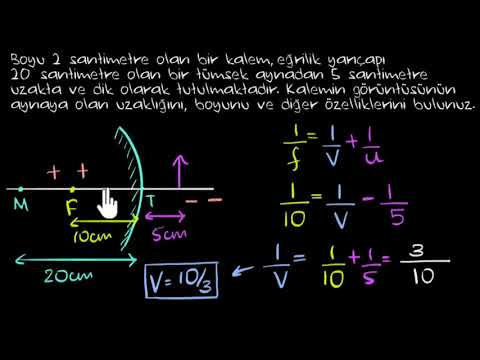 Boyu 2 santimetre olan bir kalem, eğrilik yarıçapı
20 santimetre olan bir tümsek aynadan 5 santimetre
uzakta ve dik olarak tutulmaktadır. Kalemin görüntüsünün
aynaya olan uzaklığını, boyunu ve diğer özelliklerini bulunuz.
1/f = 1/V + 1/u
+ +
M F T - -
1/10 = 1/V - 1/5
10cm 5cm
20cm
V = 10/3
1/V = 1/10 + 1/5 = 3/10